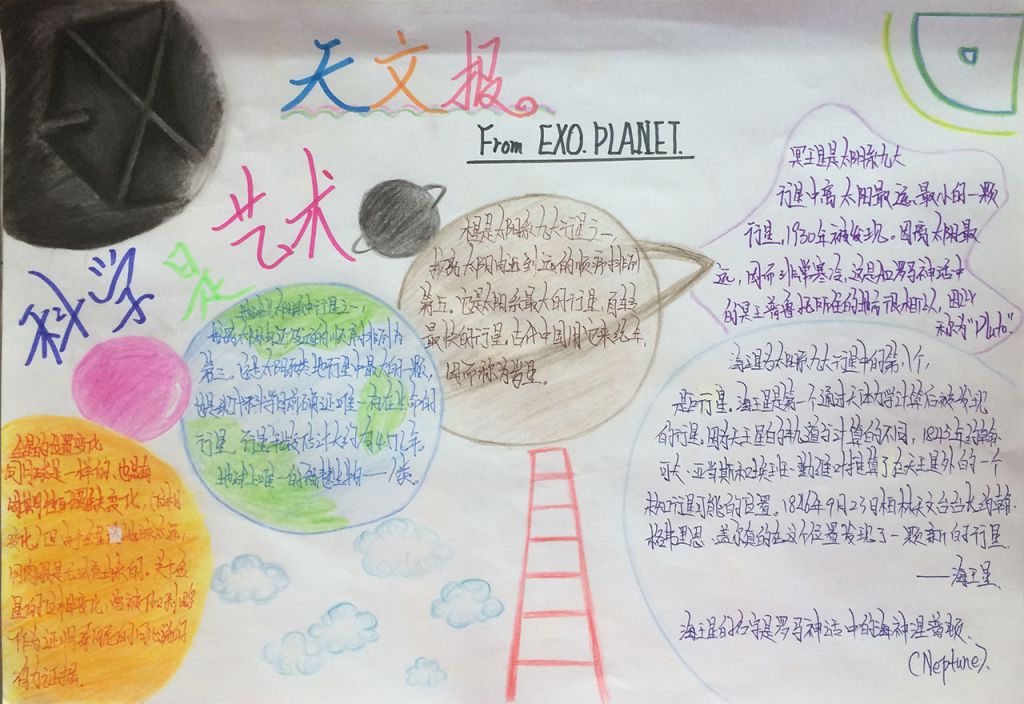 天文报。
From EXO.PLANET.
科学是艺术
冥王星是太阳系九大
行星中离太阳最远、最小的一颗
行星，1930年被发现。因离太阳最
远，因而非常寒冷，这是和罗马神话中
的冥王普鲁托所住的地方很相似，因此
称为"Pluto"
木星是太阳系九大行星之一
按离太阳由近到远的顺序排列
第五。它是太阳系最大的行星，自转
最快的行星，古代中国用它来纪年，
因而称为岁星。
地球是太阳系中行星之一，
按离太阳由近及远的顺序排列为
第三。它是太阳系类地行星中最大的一颗，
也是现代科学目前确证唯一存在生命的
行星。行星年龄估计大约有45亿年。
地球上唯一的智慧生物——人类。
金星的位置变化
同月球是一样的，也具有
周期性的圆缺变化，（位相
变化）但由于金星
星的位相变化，曾被伽利略
作为证明哥白尼的日心说的
有力证据。
海王星为太阳系九大行星中的第八个，
行星。海王星是第一个通过天体力学计算后被发现
的行星。因为天王星的轨道与计算的不同，1845年约翰·
可夫·亚当斯和埃班·勒维叶推算了在天王星外的一个
行星可能的位置。1846年9月23日柏林天文台台长约翰·
格弗里恩·盖尔真的在这个位置发现了一颗新的行星
——海王星
海王星的名字是罗马神话中的海神涅普顿.
(Neptune).